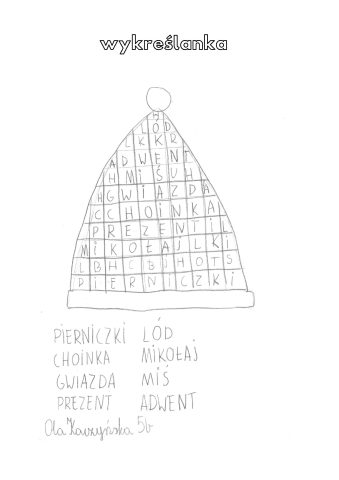 wykreślanka
LÓD
LKKR
ADWENT
HMIŚUH
HGWIAZDA
CCHOINKA
PREZENTIL
MIKOŁAJLKI
LBHCBJHOTS
PIERNICZKI
PIERNICZKI LÓD
CHOINKA MIKOŁAJ
GWIAZDA MIŚ
PREZENT ADWENT
Ola 5b